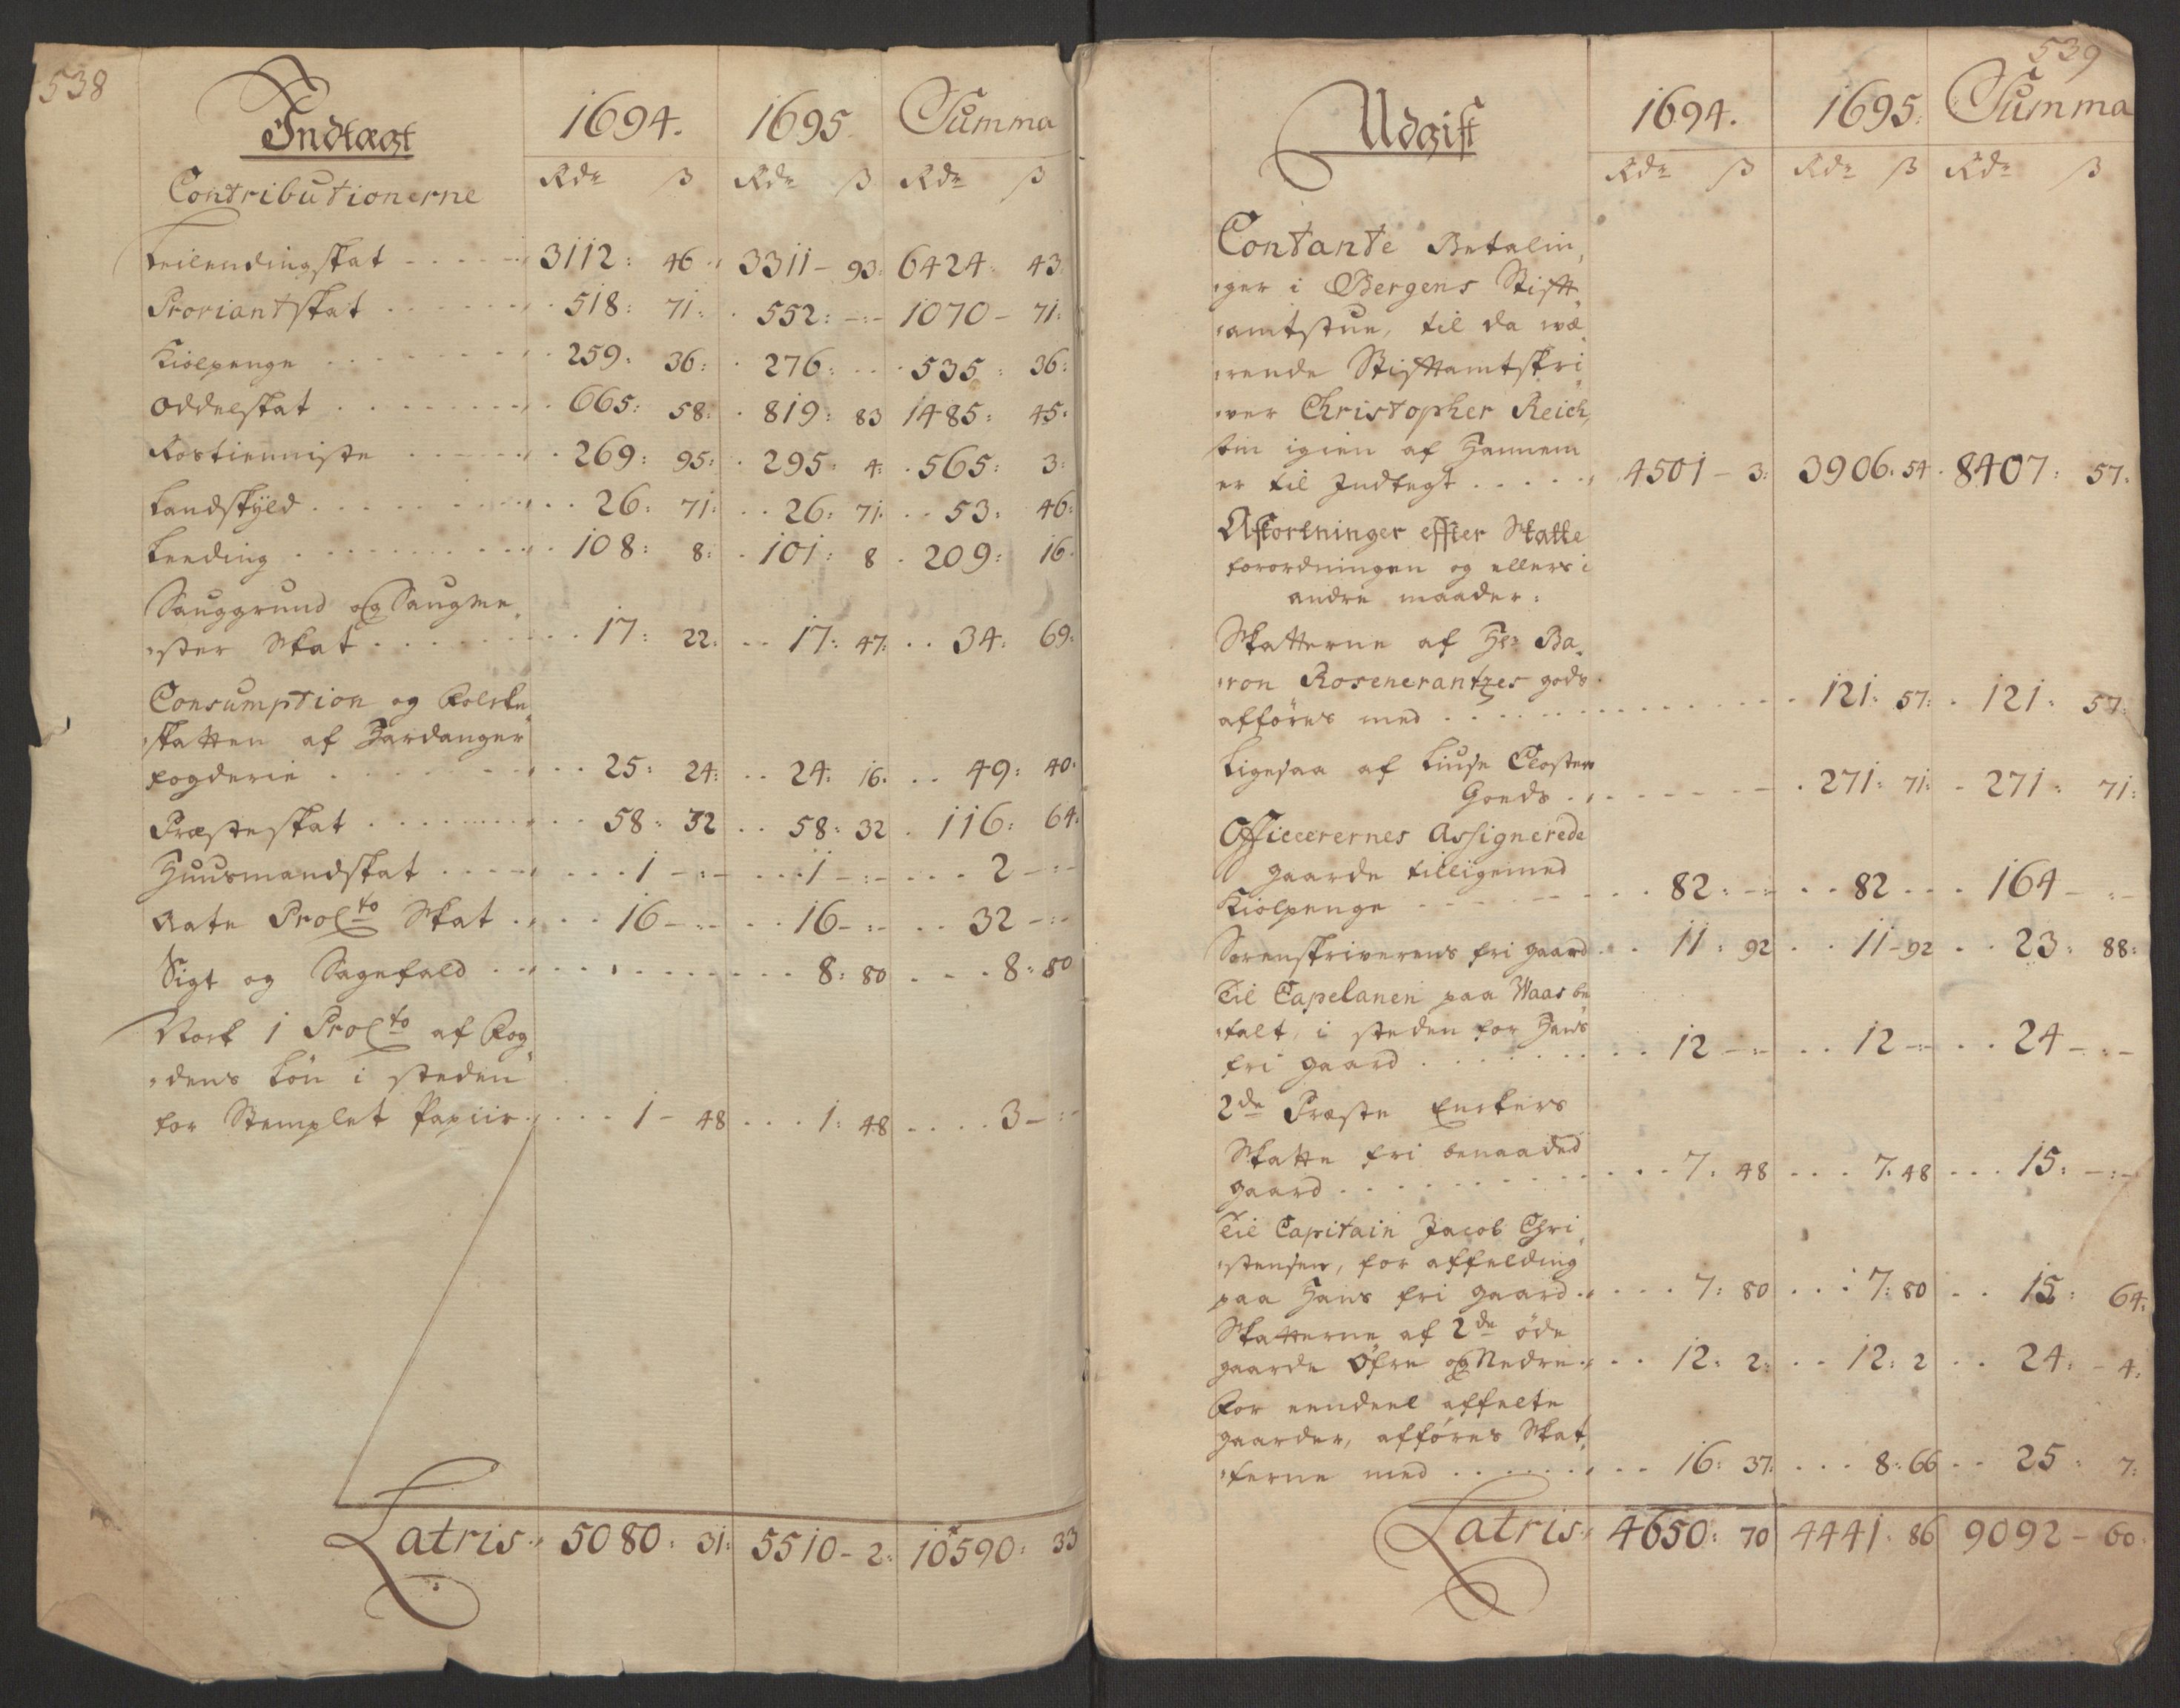 538
Indtægt
1694. 1695. Summa
Contributionerne
Rdr ß Rdr ß Rdr ß
Leilendingskat 3112: 46 3311 - 93: 6424: 43:
Proviantskat 518: 71: 552: -:- 1070 - 71:
Kiolpenge 259: 36: 276: 535: 36:
Oddelskat 665: 58: 819: 83 1485: 45:
Rostienniste 269: 95: 295: 4: 565: 3:
Landskÿld 26: 71: 26: 71: 53: 46:
Leeding 108: 8: 101: 8 209: 16
Sauggrund og Saugme„
„ster Skat 17: 22: 17: 47: 34: 69:
Consumption og Folcke„
„skatten af Hardanger
fogderie 25: 24: 24: 16: 49: 40:
Præsteskat 58: 32 58: 32 116: 64:
Huusmandskat 1 -:- 1 -:- 2 -:-
Aate Proc<sup>to</sup> Skat 16 -:- 16 -:- 32 -:-
Sigt og Sagefald 8: 80 8: 80
Nock 1 Proc<sup>to</sup> af Fog„
„dens Lön i steden
for Stemplet Papiir 1 - 48 1: 48 3 -:-
Latris 5080: 31: 5510 - 2: 10590: 33
539
Udgift
1694. 1695: Summa
Rdr ß Rdr ß Rdr ß
Contante Betalin„
„ger i Bergens Stift„
„amtstue, til da wæ„
„rende Stiftamtskri„
„ver Christopher Reich„
tin igien af Hannem
er til Indtegt 4501 - 3: 3906: 54 8407: 57:
Afkortninger effter Skatte
forordningen og ellers i
andre maader:
Skatterne af Hr: Ba„
„ron Rosencrantzes gods
afföres med 121: 57: 121: 57:
Ligesaa af Liuse Closter
Goeds 271: 71: 271: 71:
Officerernes Assignerede
gaarde tilligemed
Kiolpenge 82: -:- 82 164 -:-
Sorenskriverens fri gaard 11: 92 11 - 92 23: 88:
Til Capelanen paa Waas be„
„talt, i steden for Hans
fri gaard 12 -:- 12 -:- 24 -:-
2de Præste Enckers
Skatte fri benaaded
gaard 7: 48 7: 48 15: -:-
Til Capitain Jacob Chri„
„stensen, for affelding
paa Hans fri gaard 7: 80 7: 80 15: 64:
Skatterne af 2de öde
gaarde Öfre og Nedre 12: 2: 12: 2 24: - 4:
For eendeel affelte
gaarder, afföres Skat„
„terne med 16: 37: 8: 66 25: 7:
Latris 4650: 70 4441: 86 9092 - 60: